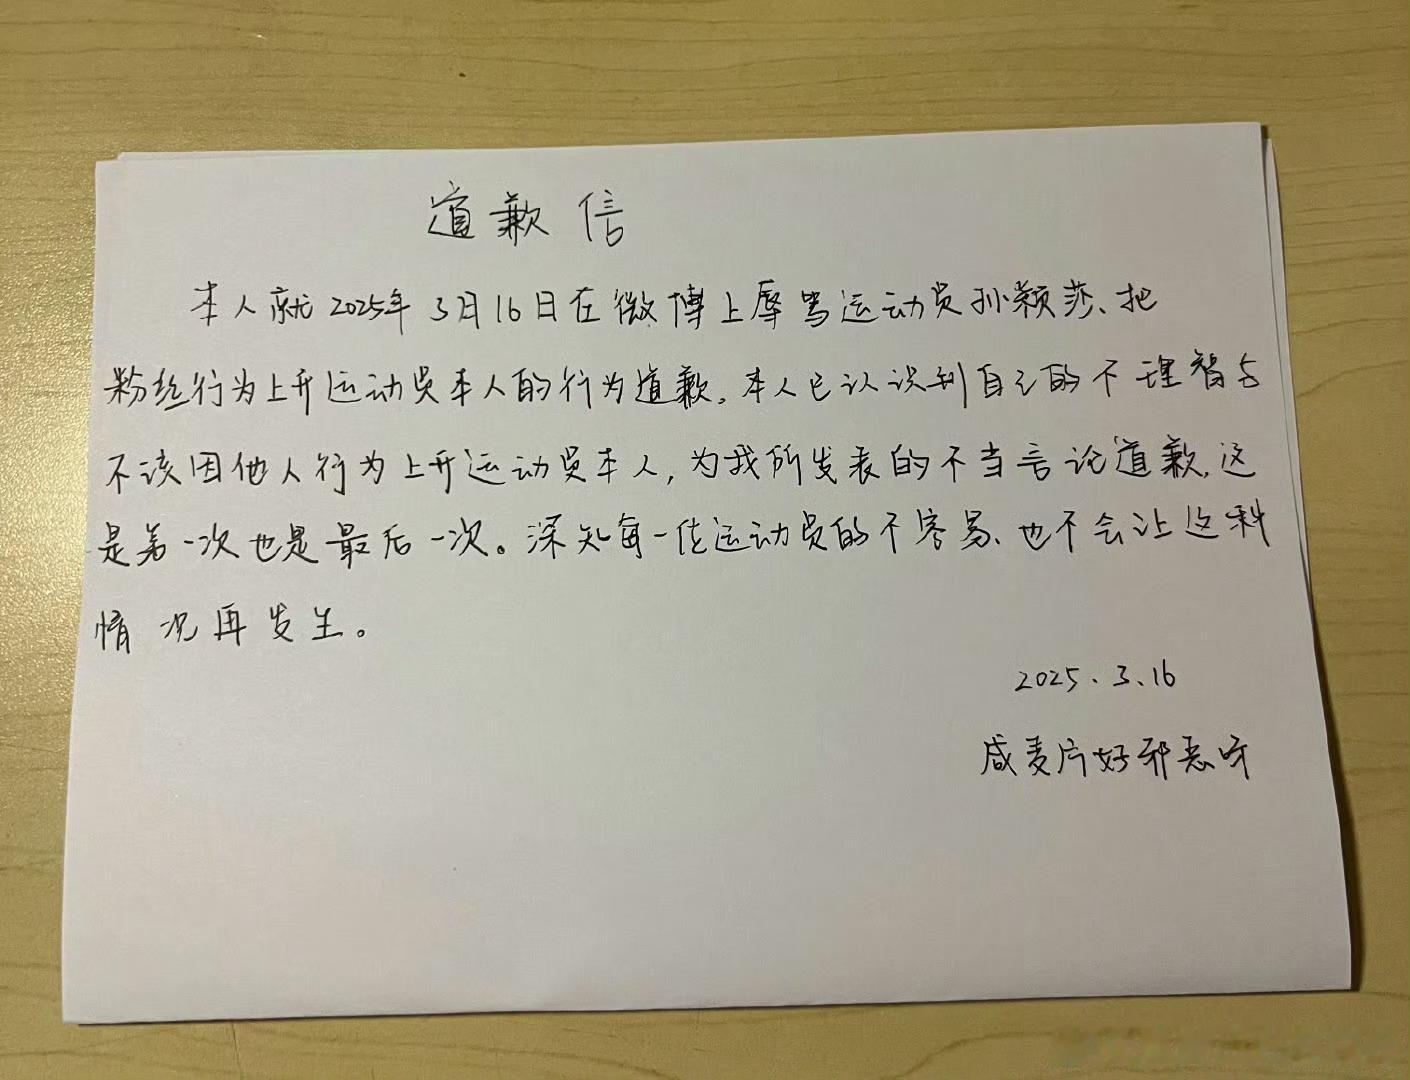 道歉信
本人就2025年3月16日在微博上辱骂运动员孙颖莎、把
粉丝行为上升运动员本人的行为道歉。本人已认识到自己的不理智与
不该因他人行为上升运动员本人,为我所发表的不当言论道歉,这
是第一次也是最后一次。深知每一位运动员的不容易、也不会让这种
情况再发生。
2025.3.16
咸麦片好邪恶呀